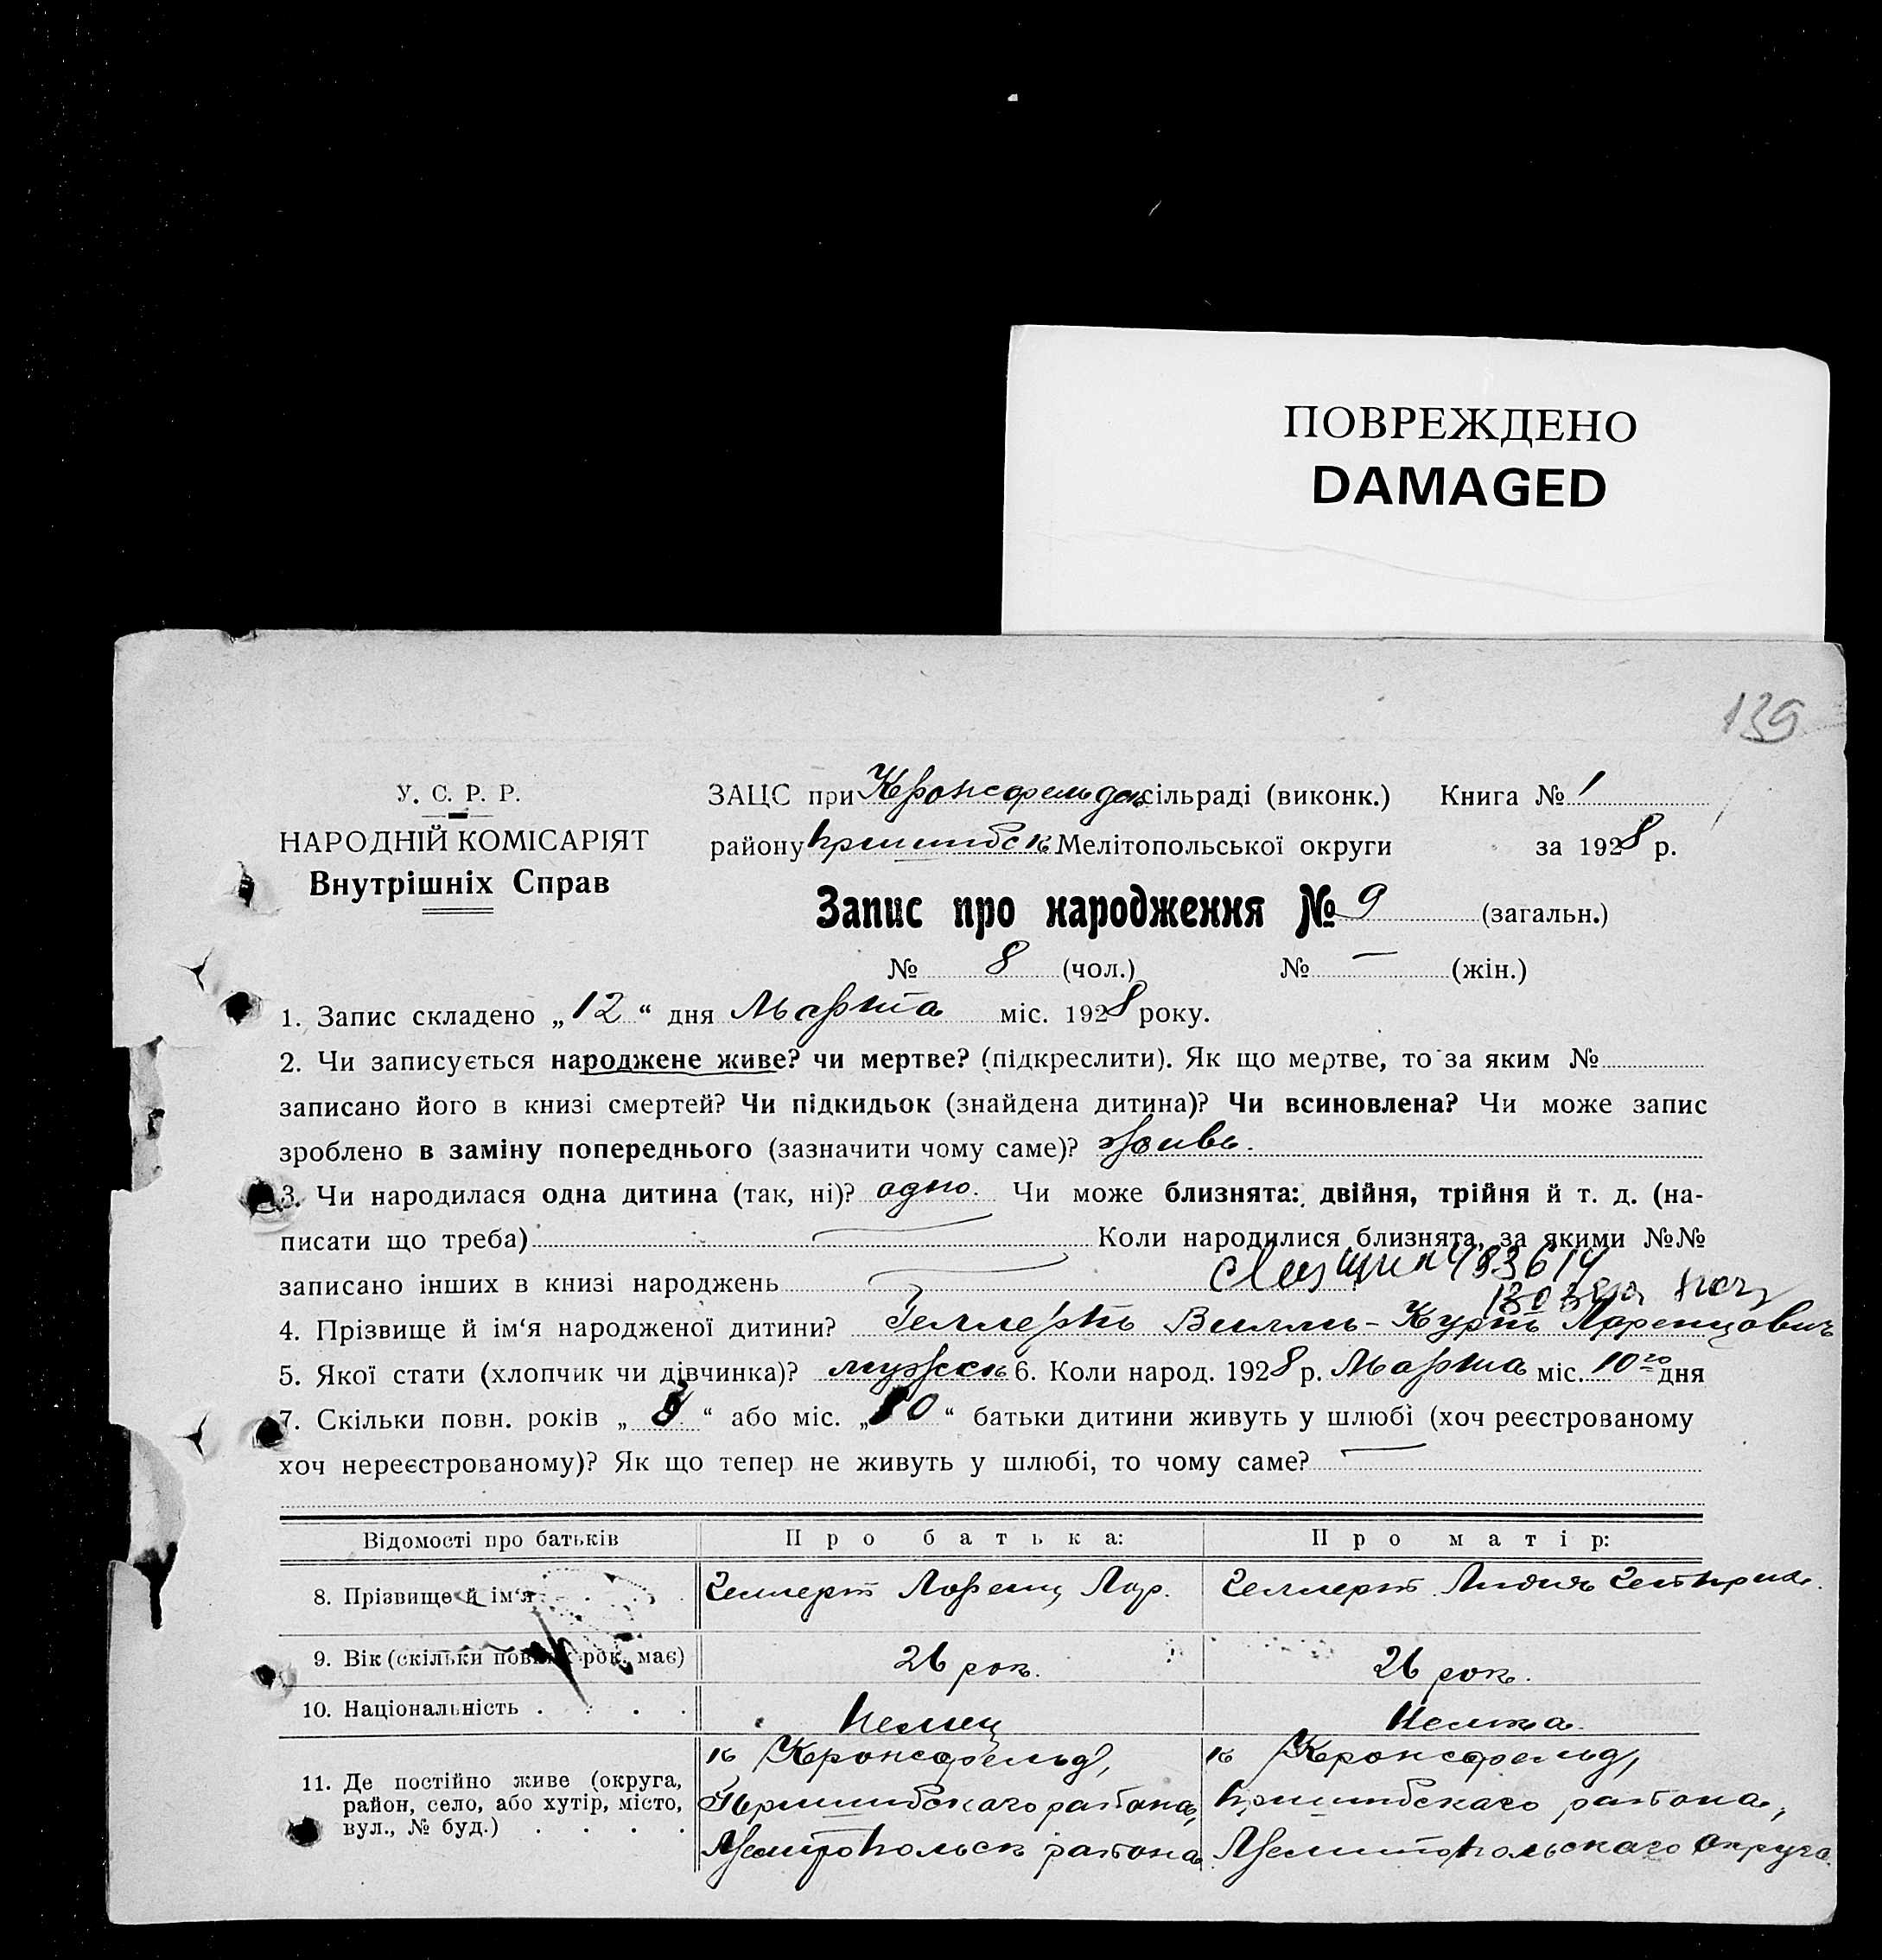 ПОВРЕЖДЕНО
DAMAGED
139
У. С. Р. Р.
НАРОДНІЙ КОМІСАРІЯТ
Внутрішніх Справ
ЗАЦС при Кронсфельдск сільраді (виконк.) Книга № 1
району Пришибск Мелітопольської округи за 1928 р.
Запис про народження № 9 (загальн.)
№ 8 (чол.) № — (жін.)
1. Запис складено „12“ дня Марта міс. 1928 року.
2. Чи записується народжене живе? чи мертве? (підкреслити). Як що мертве, то за яким №
записано його в книзі смертей? Чи підкидьок (знайдена дитина)? Чи всиновлена? Чи може запис
зроблено в заміну попереднього (зазначити чому саме)? живь.
3. Чи народилася одна дитина (так, ні)? одно. Чи може близнята: двійня, трійня й т. д. (на-
писати що треба) Коли народилися близнята, за якими №№
записано інших в книзі народжень
4. Прізвище й ім‘я народженої дитини? Геллерть Вилли-Курть Лоренцович
5. Якої стати (хлопчик чи дівчинка)? мужск 6. Коли народ. 1928 р. Марта міс. 10го дня
7. Скільки повн. років „ “ або міс. „10“ батьки дитини живуть у шлюбі (хоч реєстрованому
хоч нереєстрованому)? Як що тепер не живуть у шлюбі, то чому саме? —
Відомості про батьків Про батька: Про матір:
8. Прізвище й ім‘я Геллерт Лоренц Лор. Геллерт Лидия Гентрих.
9. Вік (скільки повних рок. має) 26 рок. 26 рок.
10. Національність Немец Немка
11. Де постійно живе (округа, район, село, або хутір, місто, вул., № буд.)
к Кронсфельд, к Кронсфельд,
Пришибскаго района, Пришибскаго района,
Мелитопольск района Мелитопольскаго округа